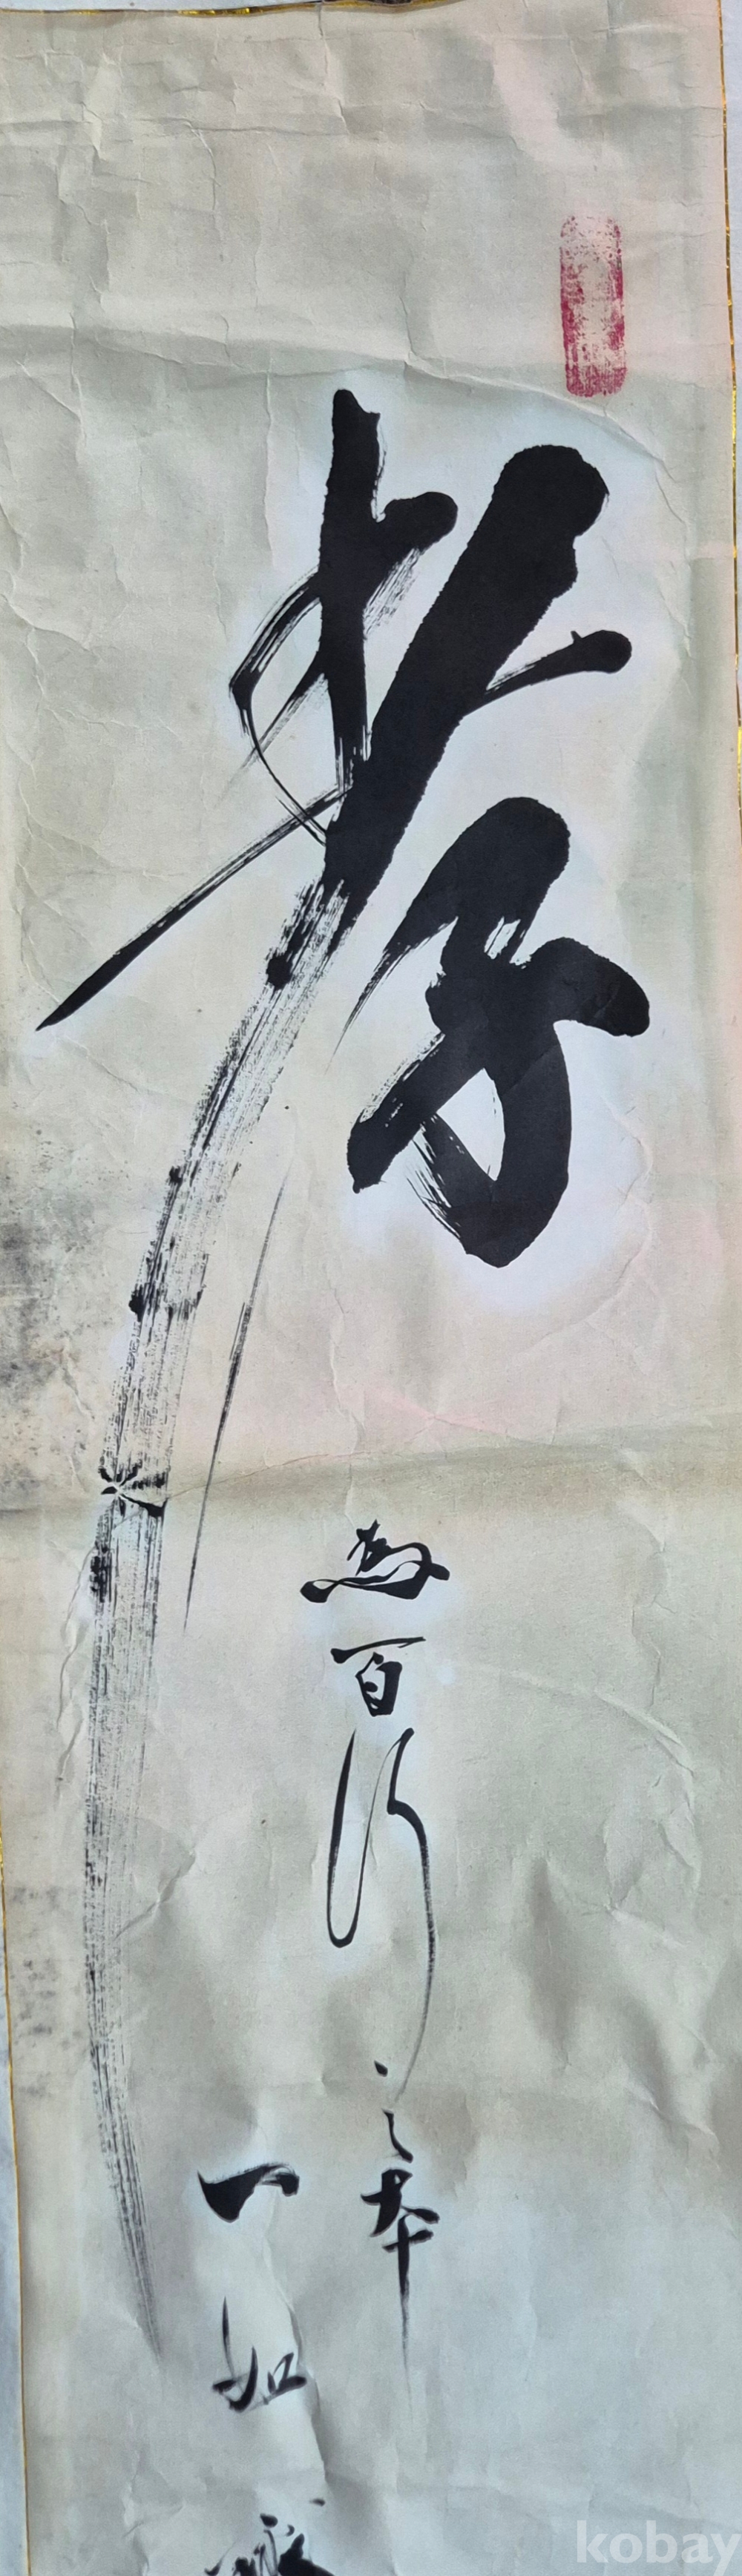 孝
為百行之本
一如
kobay